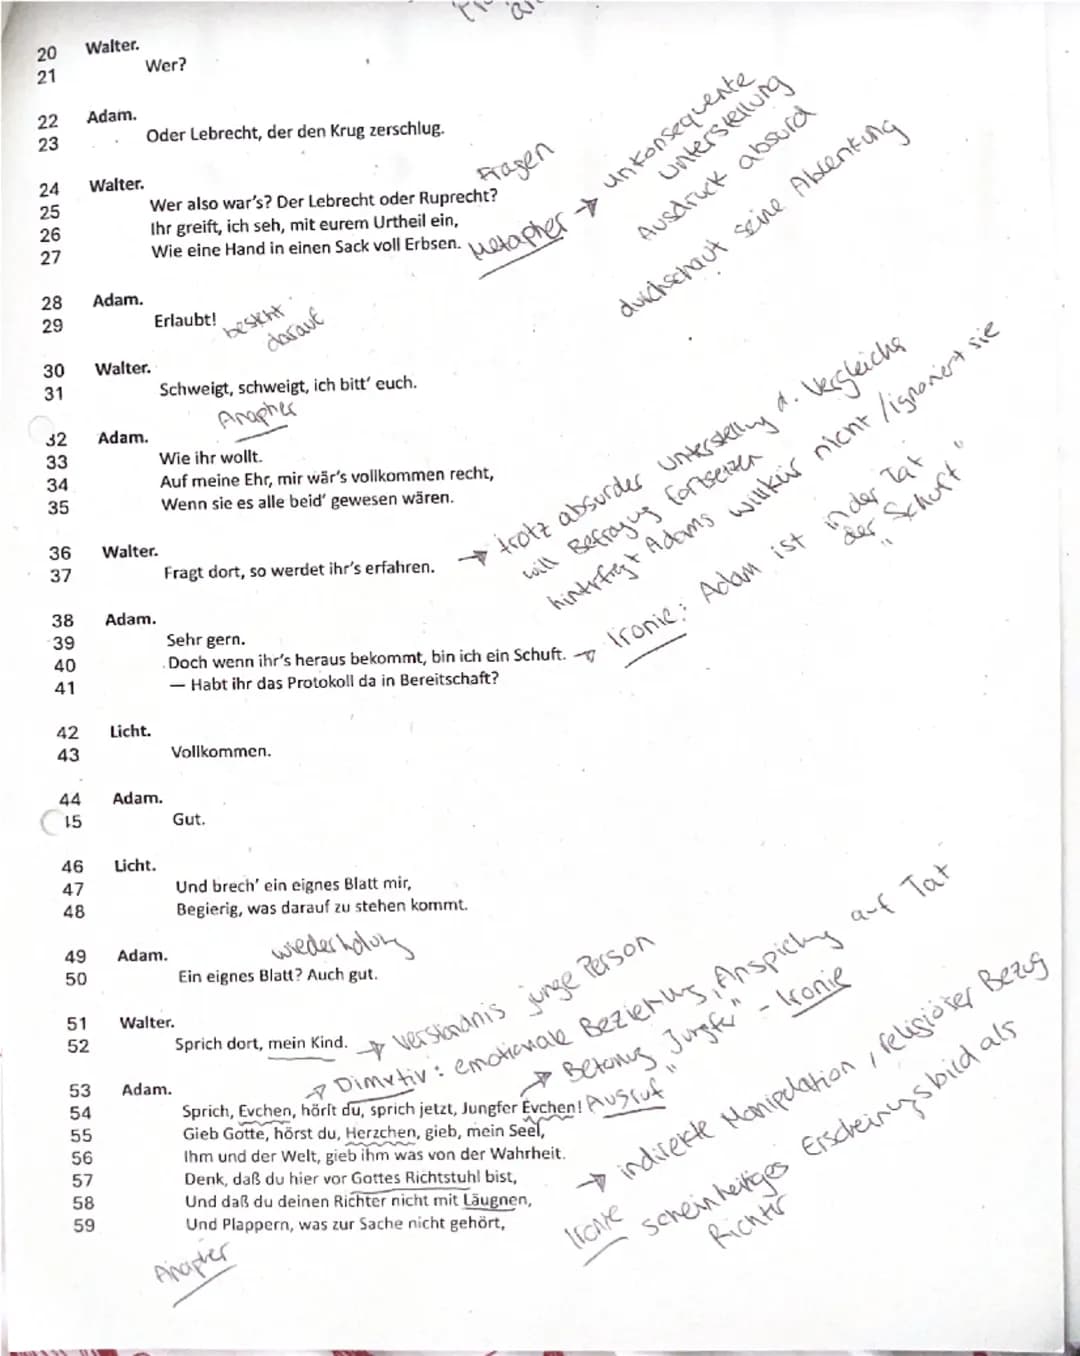 20 Walter.
21 Wer?
22 Adam.
23 Oder Lebrecht, der den Krug zerschlug.
Fragen
24 Walter.
25 Wer also war's? Der Lebrecht oder Ruprecht?
26 Ihr greift, ich seh, mit eurem Urtheil ein,
27 Wie eine Hand in einen Sack voll Erbsen.
Metapher → unkonsequente
Unterstellung
Ausdruck absurd
durchschaut seine Ablenkung
28 Adam.
29 Erlaubt!
besteht
darauf
30 Walter.
31 Schweigt, schweigt, ich bitt' euch.
Anapher
32 Adam.
33 Wie ihr wollt.
34 Auf meine Ehr, mir wär's vollkommen recht,
35 Wenn sie es alle beid' gewesen wären.
36 Walter.
37 Fragt dort, so werdet ihr's erfahren.
→ trotz absurder Unterstellung d. Vergleichs
will Befragung fortsetzen
hinterfragt Adams Willkür nicht / ignoriert sie
38 Adam.
39 Sehr gern.
40 Doch wenn ihr's heraus bekommt, bin ich ein Schuft.
→ Ironie: Adam ist in der Tat
der "Schuft"
41 — Habt ihr das Protokoll da in Bereitschaft?
42 Licht.
43 Vollkommen.
44 Adam.
15 Gut.
46 Licht.
47 Und brech' ein eignes Blatt mir,
48 Begierig, was darauf zu stehen kommt.
49 Adam.
wiederholung
50 Ein eignes Blatt? Auch gut.
51 Walter.
52 Sprich dort, mein Kind.
→ Verständnis junge Person
53 Adam.
→ Dimutiv: emotionale Beziehung, Anspielung auf Tat
→ Betonung "Jungfer" - Ironie
54 Sprich, Evchen, hörst du, sprich jetzt, Jungfer Evchen!
Ausruf
55 Gieb Gotte, hörst du, Herzchen, gieb, mein Seel,
56 Ihm und der Welt, gieb ihm was von der Wahrheit.
57 Denk, daß du hier vor Gottes Richtstuhl bist,
→ indirekte Manipulation, religiöser Bezug
58 Und daß du deinen Richter nicht mit Läugnen,
59 Und Plappern, was zur Sache nicht gehört,
Ironie scheinheiliges Erscheinungsbild als
Richter
Anapher